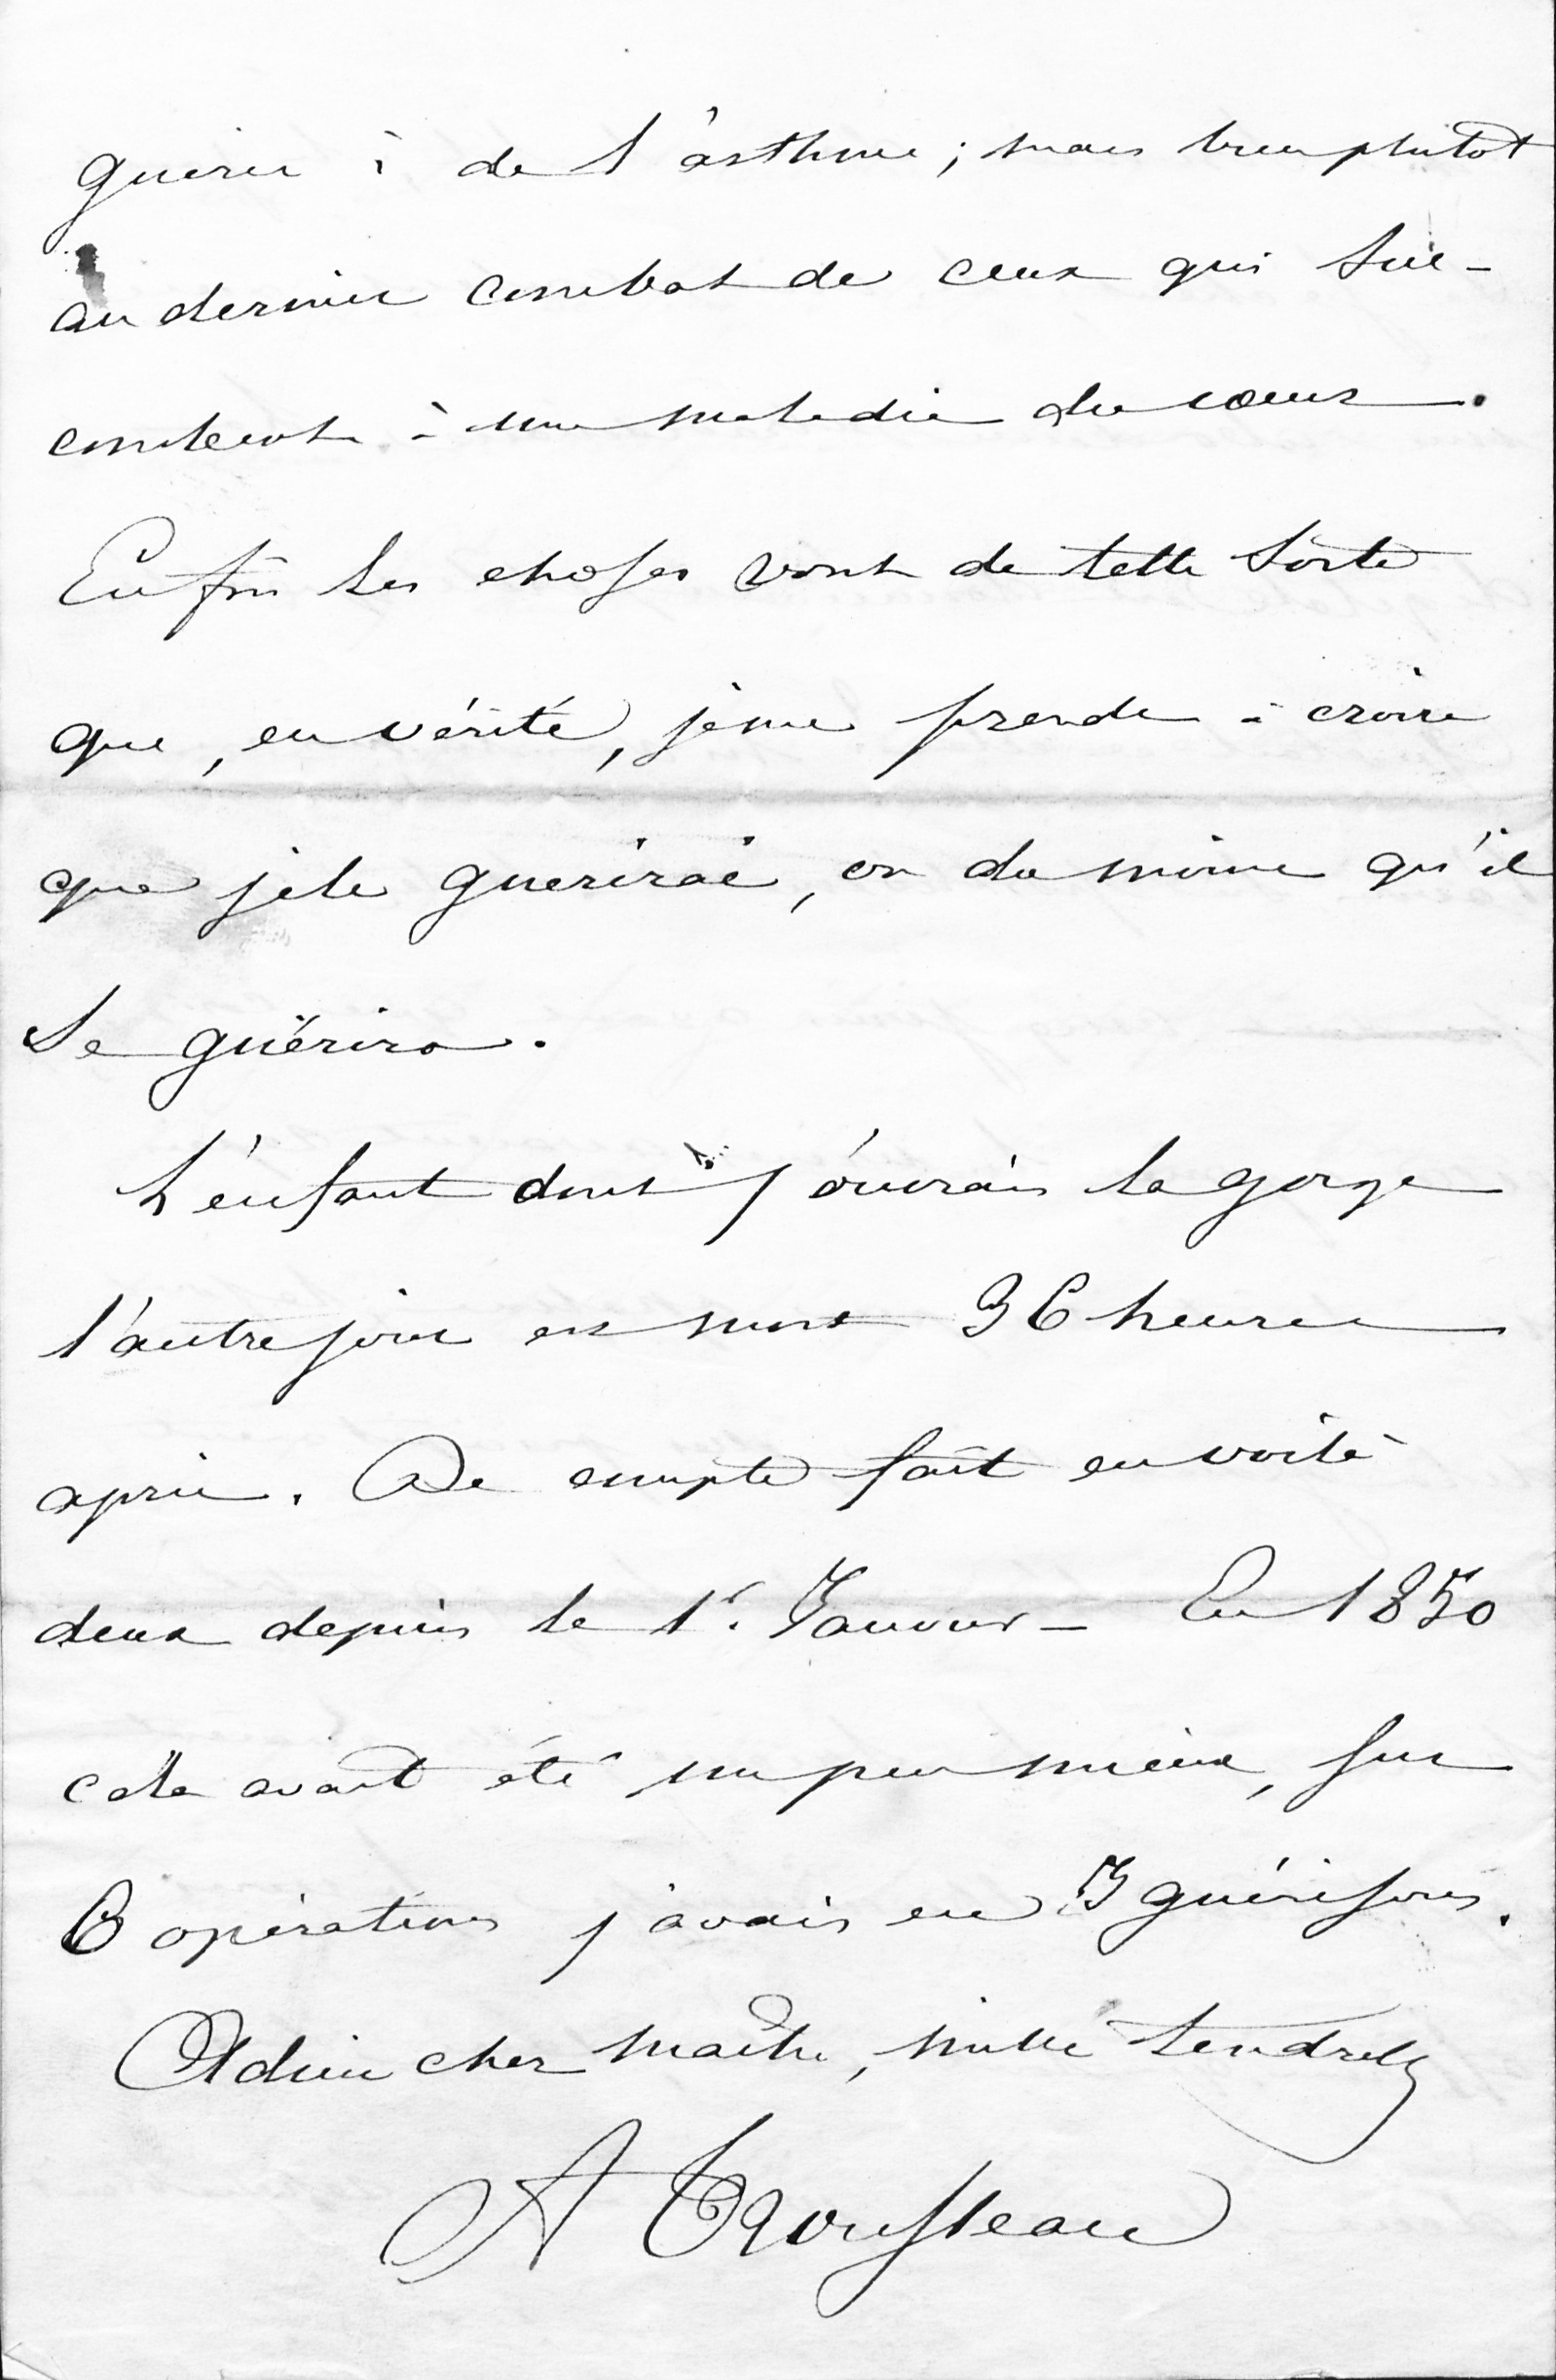 guères à de l'asthme ; mais bien plutôt
au dernier combat de ceux qui suc-
combent à une maladie du cœur.
Enfin les choses vont de telle sorte
que, en vérité, je me prends à croire
que je le guérirai, ou du moins qu'il
se guérira.
L'enfant dont j'ouvrais la gorge
l'autre jour est mort 36 heures
après. De compte fait en voilà
deux depuis le 1r. Janvier - En 1850
cela avait été un peu mieux, sur
6 opérations j'avais eu 3 guérisons.
Adieu cher maître, mille tendresses
A Trousseau